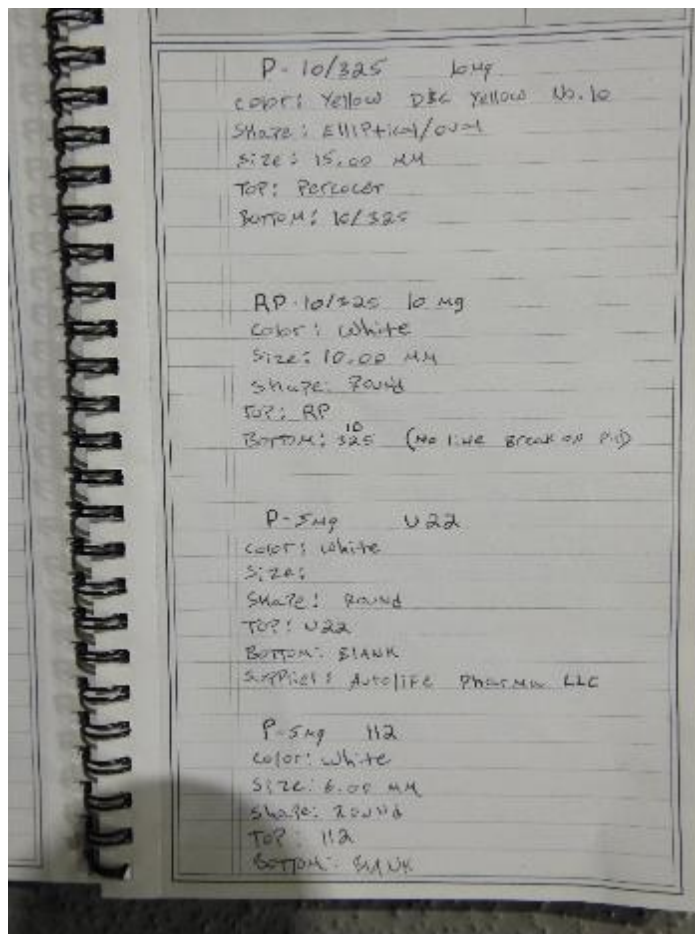 P-10/325 10mg
Color: Yellow D&C Yellow No.10
Shape: Elliptical/oval
Size: 15.00 MM
TOP: Percocet
Bottom: 10/325
RP-10/325 10 mg
Color: White
Size: 10.00 MM
Shape: Round
TOP: RP
Bottom: 10
325 (No line Break on Pill)
P-5mg U22
Color: White
Size:
Shape: Round
TOP: U22
Bottom: BLANK
Supplier: Autolife Pharma LLC
P-5mg 112
Color: White
Size: 6.00 MM
Shape: Round
TOP: 112
Bottom: BLANK